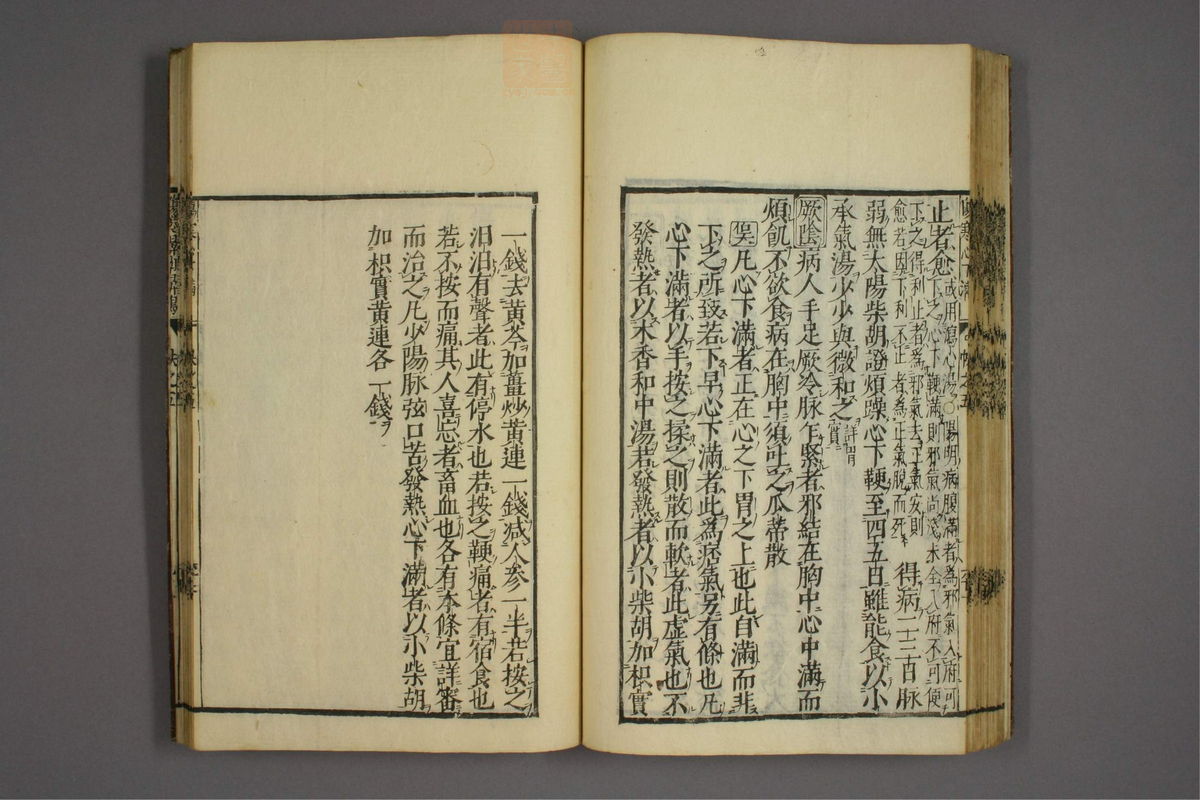 止者愈或用瀉心湯○陽明病腹滿者為邪氣入府可
下之心下鞕滿則邪氣尚淺未全入府不可便
下之得利止者為邪氣去正氣安則
愈若因下利不止者為正氣脫而死 得病二三日脉
弱無太陽柴胡證煩躁心下鞕至四五日雖能食以小
承氣湯少少與微和之詳胃實
厥陰病人手足厥冷脉乍緊者邪結在胸中心中滿而
煩飢不欲食病在胸中須吐之瓜蒂散
凡心下滿者正在心之下胃之上也此自滿而非
下之所致若下早心下滿者此為痞氣另有條也凡
心下滿者以手按之揉之則散而軟者此虛氣也不
發熱者以木香和中湯若發熱者以小柴胡加枳實
一錢去黃芩加薑炒黃連一錢減人參一半若按之
汩汩有聲者此有停水也若按之鞕痛者有宿食也
若不按而痛其人喜忘者畜血也各有本條宜詳審
而治之凡少陽脉弦口苦發熱心下滿者以小柴胡
加枳實黃連各一錢